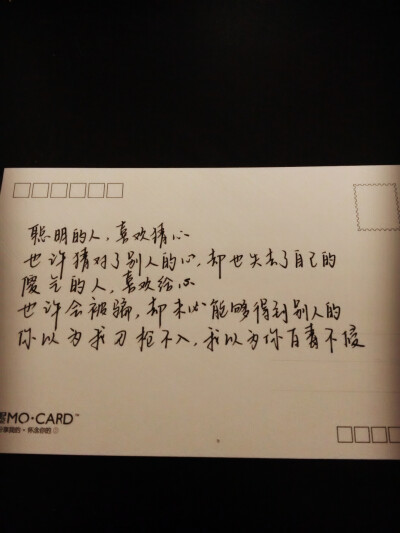 聪明的人，喜欢猜心
也许猜对了别人的心，却也失去了自己的
傻气的人，喜欢给心
也许会被骗，却未必能够得到别人的
你以为我刀枪不入，我以为你百毒不侵
MO·CARD™